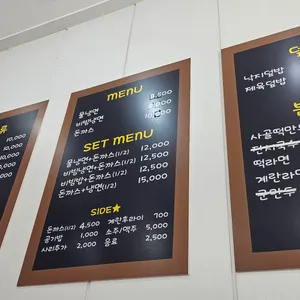 류
10,000
10,000
10,000
10,000
MENU
물냉면 8,500
비빔냉면 9,000
돈까스
SET MENU
물냉면+돈까스(1/2) 12,000
비빔냉면+돈까스(1/2) 12,500
비빔밥+돈까스(1/2) 12,500
돈까스+냉면(1/2) 15,000
SIDE★
돈까스(1/2) 4,500 계란후라이 700
공기밥 1,000 소주/맥주 5,000
사리추가 2,000 음료 2,500
낙지덮밥
제육덮밥
사골떡만
떡라면
계란라면
군만두